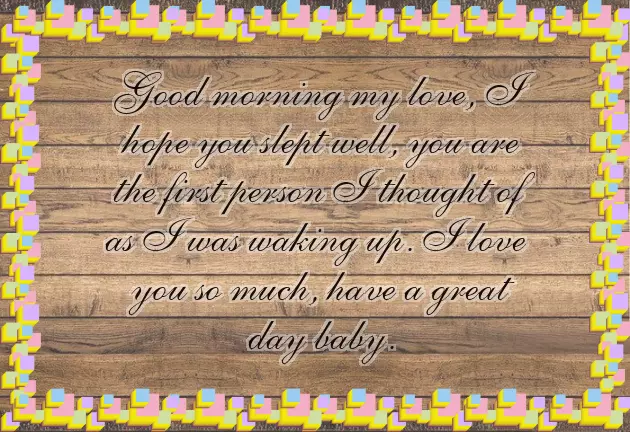 Good morning my love, I
hope you slept well, you are
the first person I thought of
as I was waking up. I love
you so much, have a great
day baby.